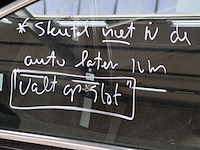 * Skeutel niet in de
auto laten ivm
"valt op slot"